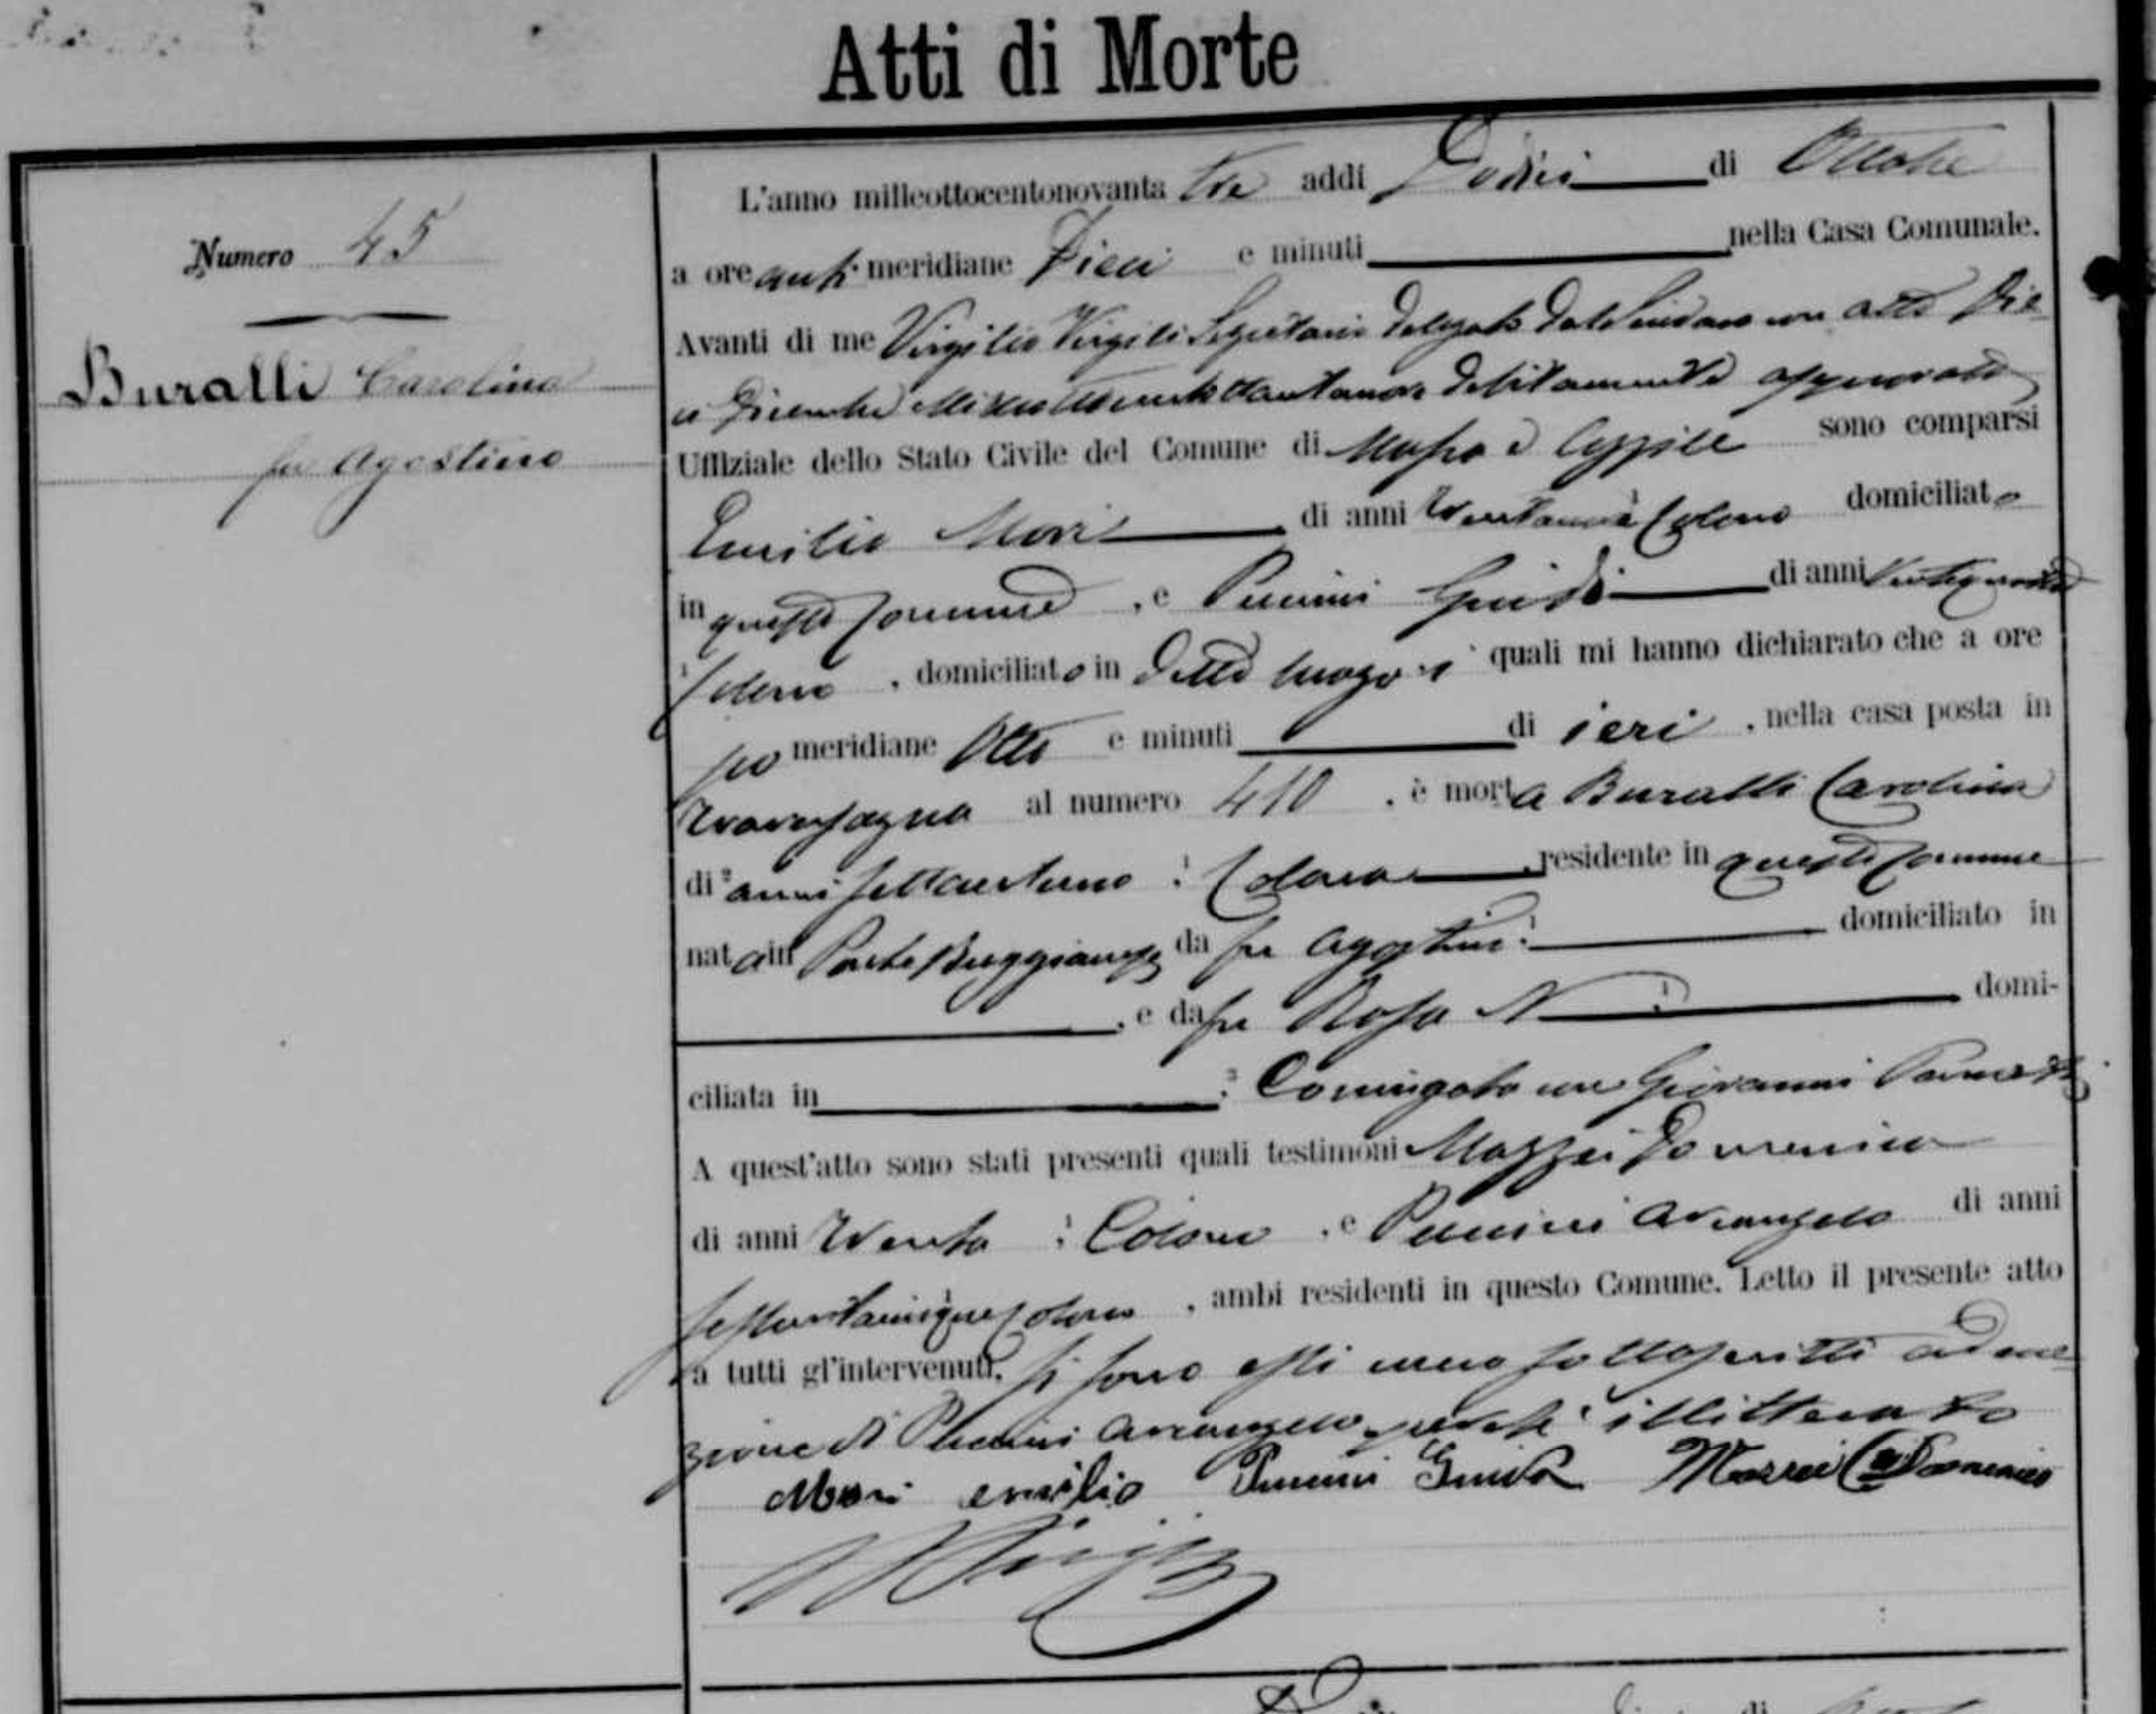 Atti di Morte
Numero 45
Buralli Carolina
fu Agostino
L'anno milleottocentonovanta tre addì Dodici di Ottobre
a ore anti meridiane Dieci e minuti nella Casa Comunale.
Avanti di me Virgilio Virgili Segretario delegato dal Sindaco con atto Die-
ci Dicembre Milleottocentottantanove debitamente approvato
Uffiziale dello Stato Civile del Comune di Massa e Cozzile sono comparsi
Emilio Mori di anni Colono domiciliato
in questo Comune, e Puccini Guido di anni
Colono, domiciliato in detto luogo i quali mi hanno dichiarato che a ore
po meridiane Otto e minuti di ieri, nella casa posta in
Traversagna al numero 410, è morta Buralli Carolina
di anni settantuno, Colona, residente in questo Comune
nata in Ponte Buggianese da fu Agostino domiciliato in
, e da fu Rosa N domi-
ciliata in Coniugata con Giovanni
A quest'atto sono stati presenti quali testimoni Mazzei Domenico
di anni trenta, Colono, e Puccini Arcangelo di anni
sessantacinque Colono, ambi residenti in questo Comune. Letto il presente atto
a tutti gl'intervenuti, si sono essi meco sottoscritti ad ecce-
zione di Puccini Arcangelo perché illitterato
Mori emilio Puccini Guido Mazzei Domenico